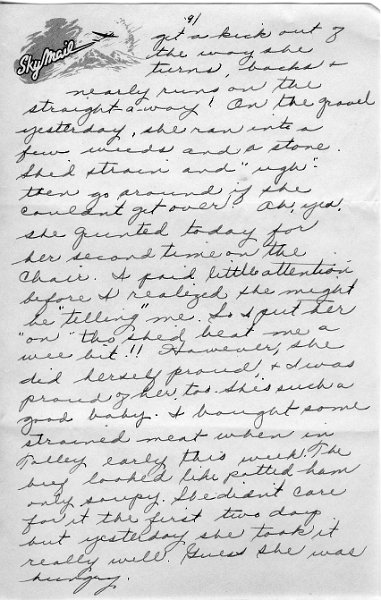 9/
Sky Mail
get a kick out of
the way she
turns, backs &
nearly runs on the
straight-a-way! On the gravel
yesterday, she ran into a
few weeds and a stone.
She'd strain and "ugh" -
then go around if she
couldn't get over! Oh, yes,
she grunted today for
her second time on the
chair. I paid little attention
before I realized she might
be "telling" me. So I put her
"on" tho she'd beat me a
wee bit!! However, she
did herself proud, & I was
proud of her, too. She's such a
good baby. I bought some
strained meat when in
Talley early this week. The
beef looked like potted ham
only soupy. She didn't care
for it the first two days
but yesterday she took it
really well. Guess she was
hungry.